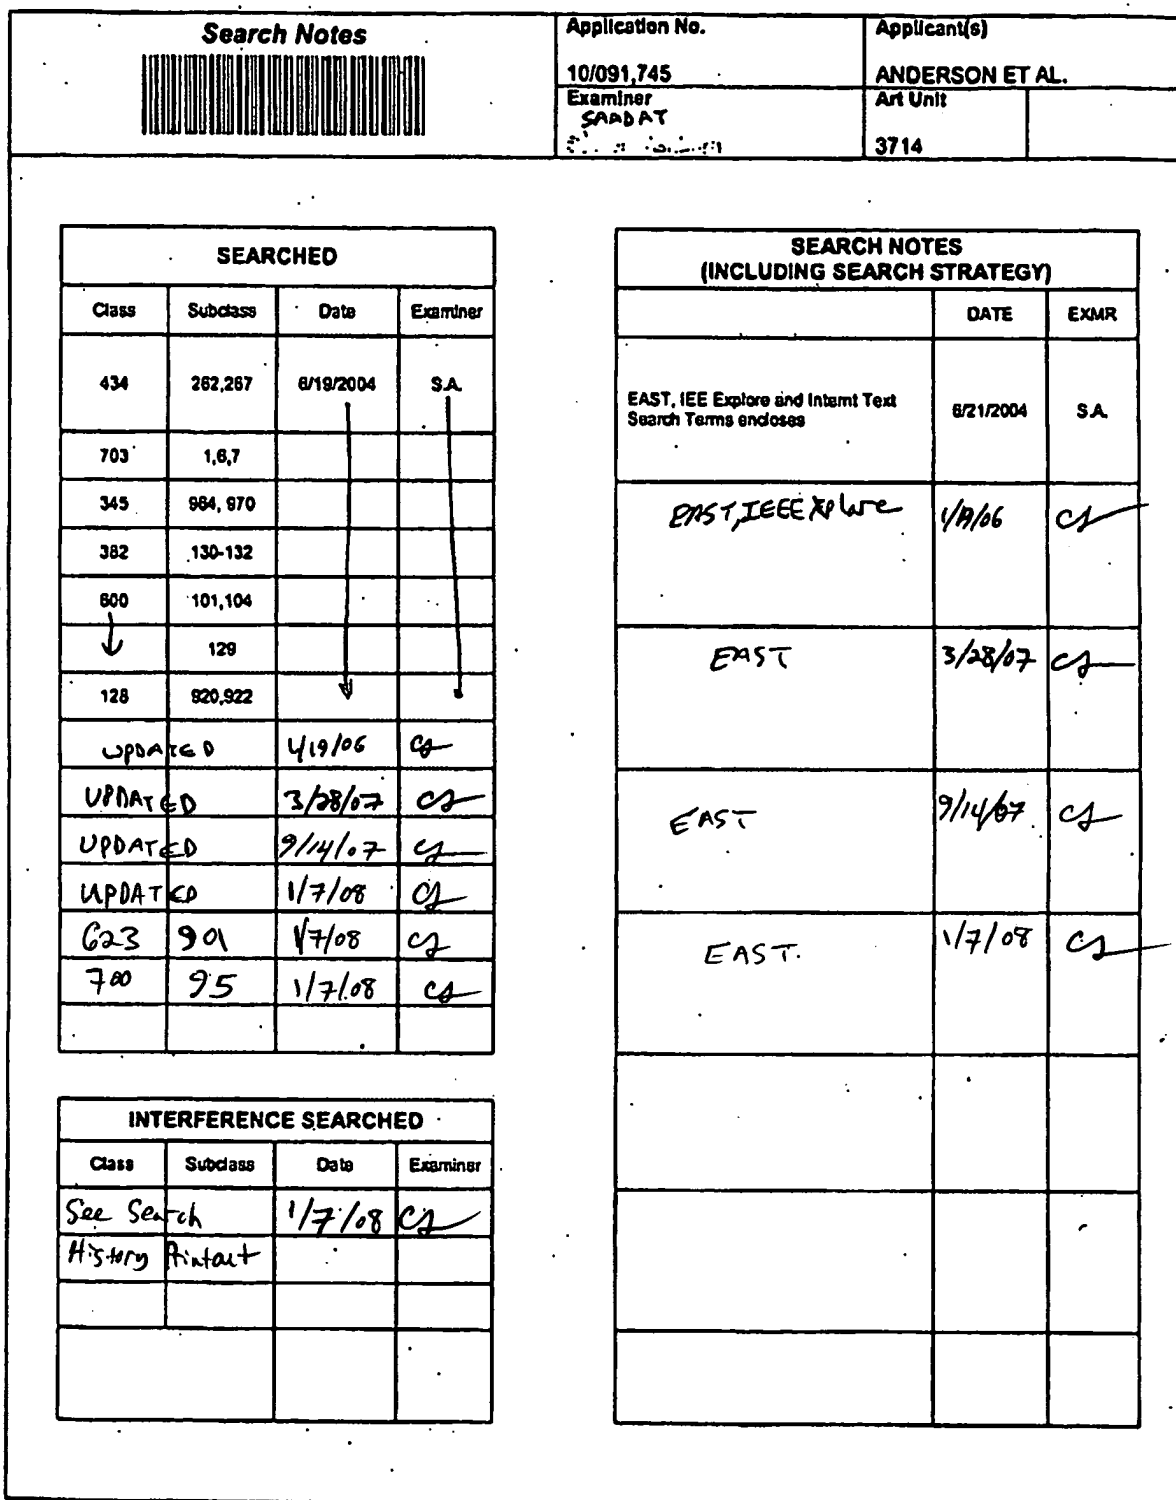 Search Notes
Application No.
10/091,745
Applicant(s)
ANDERSON ET AL.
Examiner
SAADAT
Art Unit
3714
SEARCHED
Class Subclass Date Examiner
434 262,267 6/19/2004 S.A.
703 1,6,7
345 964, 970
382 130-132
600 101,104
129
128 920,922
UPDATED 1/19/06 CS
UPDATED 3/28/07 CS
UPDATED 9/14/07 CS
UPDATED 1/7/08 CS
623 901 1/7/08 CS
700 95 1/7/08 CS
INTERFERENCE SEARCHED
Class Subclass Date Examiner
See Search 1/7/08 CS
History Printout
SEARCH NOTES
(INCLUDING SEARCH STRATEGY)
DATE EXMR
EAST, IEE Explore and Internt Text
Search Terms encloses 6/21/2004 S.A.
EAST, IEEE Xplore 1/19/06 CS
EAST 3/28/07 CS
EAST 9/14/07 CS
EAST. 1/7/08 CS